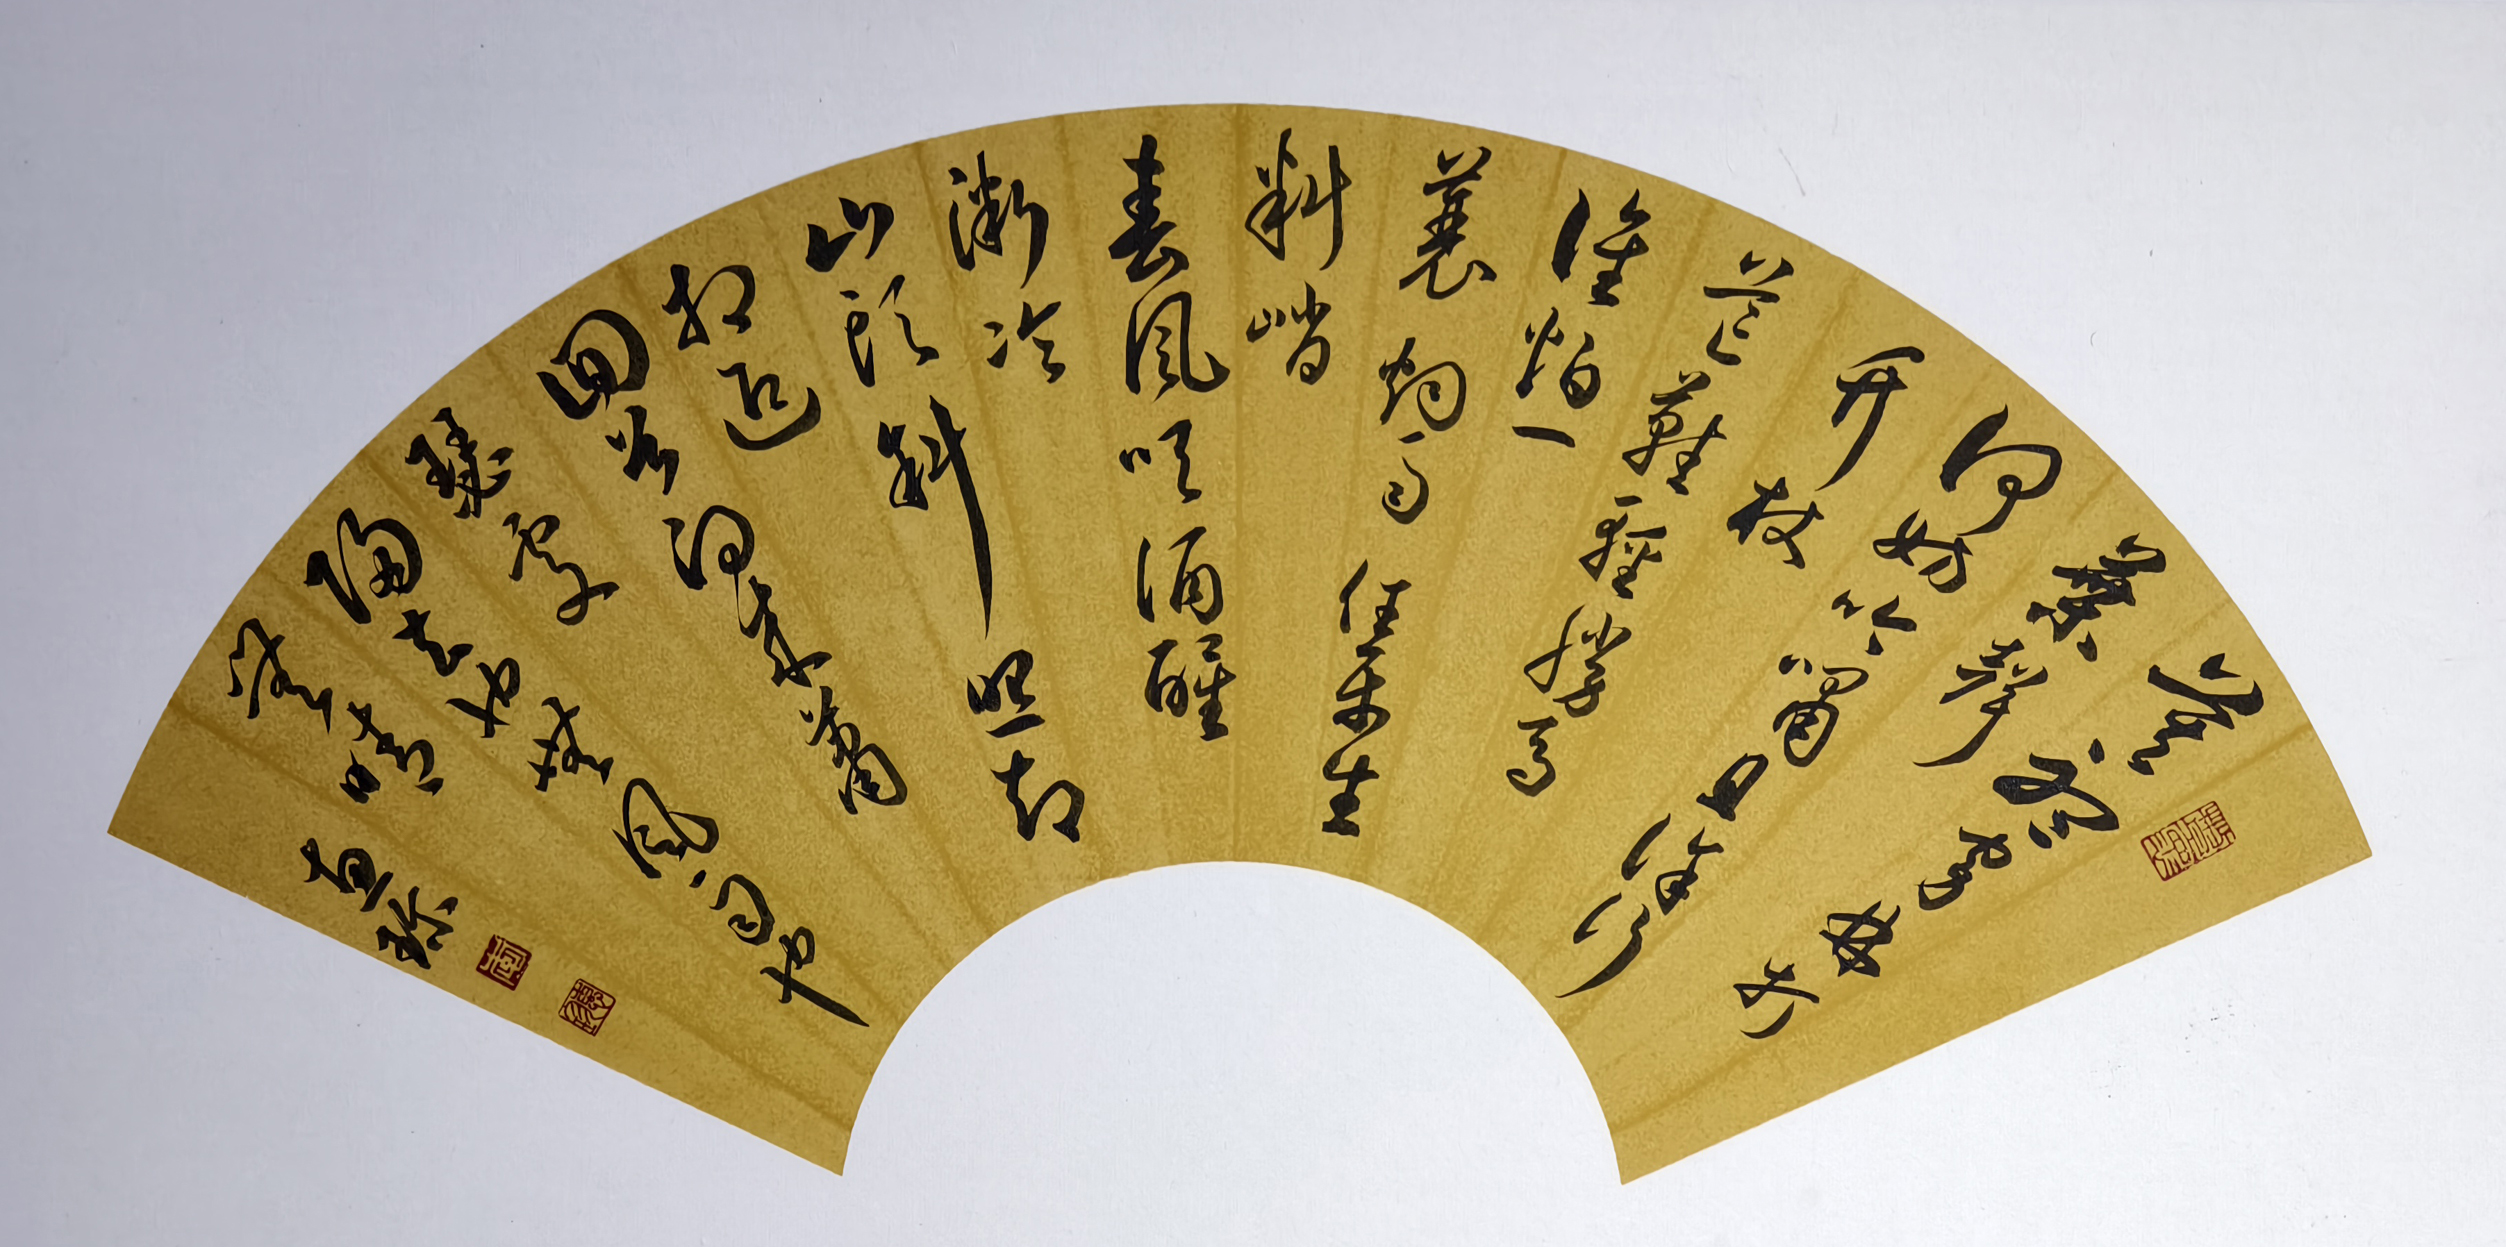 莫聽穿林打
葉聲
何妨吟嘯且徐行
竹杖
芒鞋輕勝馬
誰怕一
蓑煙雨任平生
料峭
春風吹酒醒
微冷
山頭斜照却
相迎
回首向來蕭
瑟處
歸去也無風雨也
無晴